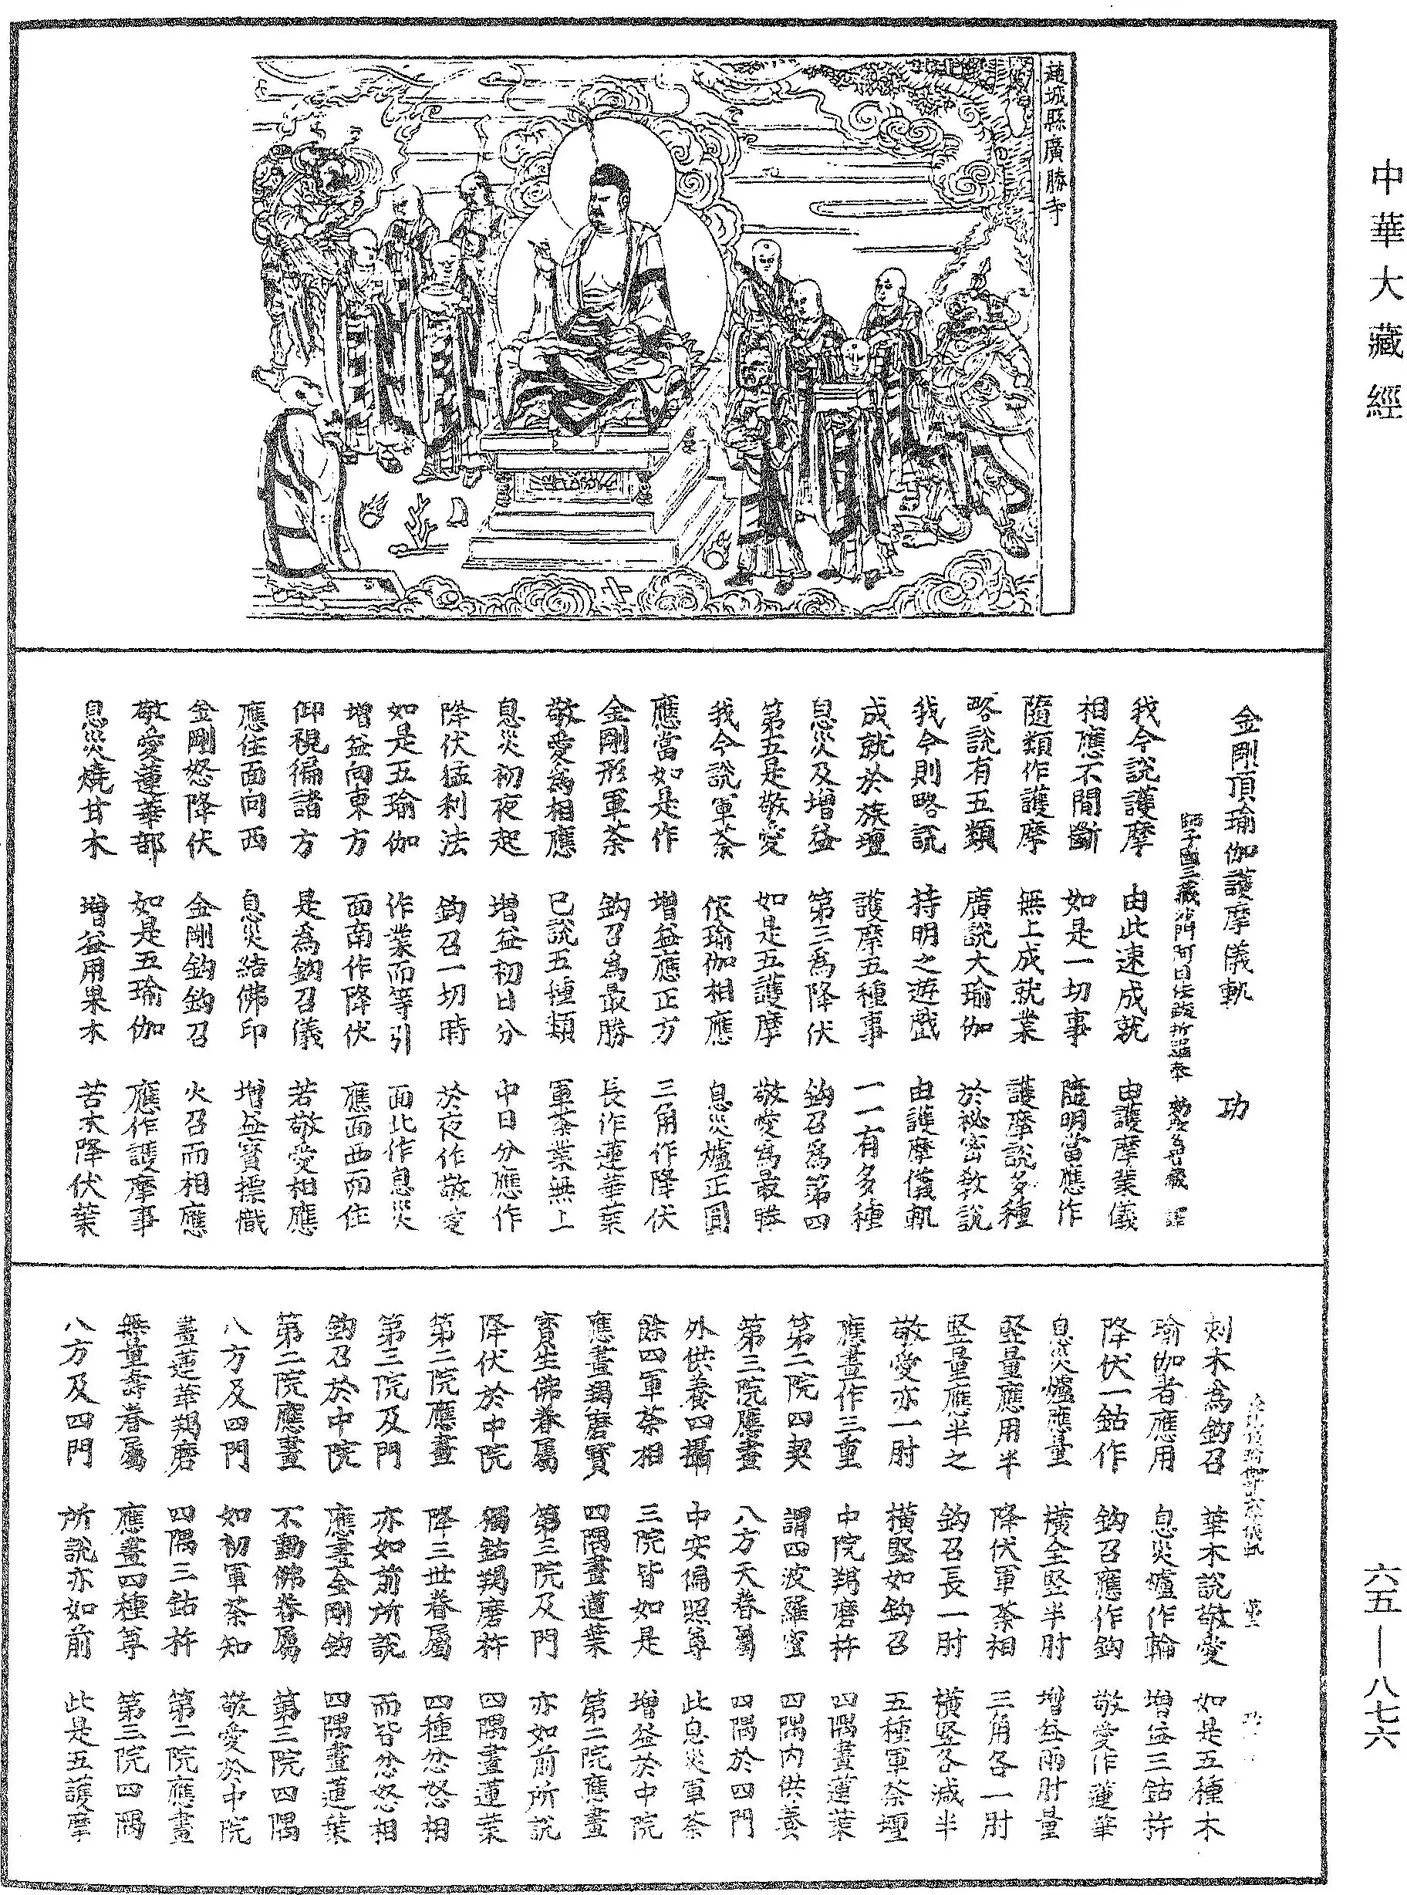 中華大藏經
趙城縣廣勝寺
金剛頂瑜伽護摩儀軌 功
師子國三藏沙門阿目佉跋折羅奉 詔 譯
我今說護摩 由此速成就 由護摩業儀
相應不間斷 如是一切事 隨明當應作
隨類作護摩 無上成就業 護摩說多種
略說有五類 廣說大瑜伽 於祕密教說
我今則略說 持明之遊戲 由護摩儀軌
成就於族壇 護摩五種事 一一有多種
息災及增益 第三為降伏 鉤召為第四
第五是敬愛 如是五護摩 敬愛為最勝
我今說軍荼 依瑜伽相應 息災爐正圓
應當如是作 增益應正方 三角作降伏
金剛形軍荼 鉤召為最勝 長作蓮華葉
敬愛為相應 已說五種類 軍荼業無上
息災初夜起 增益初日分 中日分應作
降伏猛利法 鉤召一切時 於夜作敬愛
如是五瑜伽 作業而等引 面北作息災
增益向東方 面南作降伏 應面西而住
仰視徧諸方 是為鉤召儀 若敬愛相應
應住面向西 息災結佛印 增益寶幖幟
金剛怒降伏 金剛鉤鉤召 火召而相應
敬愛蓮華部 如是五瑜伽 應作護摩事
息災燒甘木 增益用果木 苦木降伏業
刺木為鉤召 華木說敬愛 如是五種木
瑜伽者應用 息災爐作輪 增益三鈷杵
降伏一鈷作 鉤召應作鉤 敬愛作蓮華
息災爐應量 橫全竪半肘 增益兩肘量
竪量應用半 降伏軍荼相 三角各一肘
竪量應半之 鉤召長一肘 橫竪各減半
敬愛亦一肘 橫竪如鉤召 五種軍荼壇
應畫作三重 中院羯磨杵 四隅畫蓮葉
第二院四契 謂四波羅蜜 四隅內供養
第三院應畫 八方天眷屬 四隅於四門
外供養四攝 中安徧照尊 此息災軍荼
餘四軍荼相 三院皆如是 增益於中院
應畫羯磨寶 四隅畫蓮葉 第二院應畫
寶生佛眷屬 第三院及門 亦如前所說
降伏於中院 獨鈷羯磨杵 四隅畫蓮葉
第二院應畫 降三世眷屬 四種忿怒相
第三院及門 亦如前所說 而皆忿怒相
鉤召於中院 應畫金剛鉤 四隅畫蓮葉
第二院應畫 不動佛眷屬 第三院四隅
八方及四門 如初軍荼知 敬愛於中院
畫蓮華羯磨 四隅三鈷杵 第二院應畫
無量壽眷屬 應畫四種尊 第三院四隅
八方及四門 所說亦如前 此是五護摩
六五—八七六